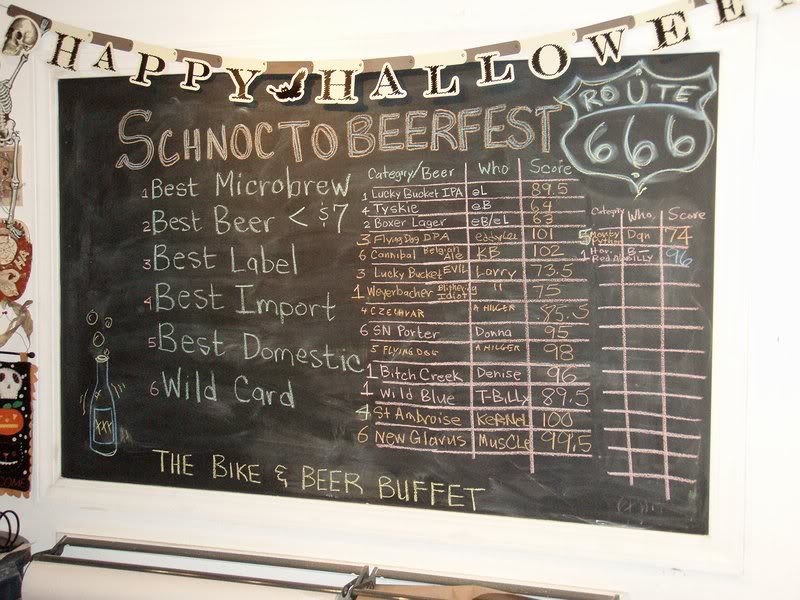 HAPPY HALLOWEE
SCHNOCTOBEERFEST
ROUTE
666
1 Best Microbrew
2 Best Beer < $7
3 Best Label
4 Best Import
5 Best Domestic
6 Wild Card
Category/Beer Who Score
1 Lucky Bucket IPA eL 89.5
4 Tyskie eB 64
2 Boxer Lager eB/eL 63
3 Flying Dog DPA 101
6 Cannibal Belgian Ale KB 102
3 Lucky Bucket EVIL Larry 73.5
1 Weyerbacher Blithering Idiot " 75
4 CZECHVAR A HILGER 85.5
6 SN Porter Donna 95
5 FLYING DOG A HILGER 98
1 Bitch Creek Denise 96
1 Wild Blue T-Billy 89.5
4 St Ambroise KERNEL 100
6 New Glarus MUSCLE 99.5
Category Who, Score
5 Monty Python Dan 74
1 Hop Rod 96
THE BIKE & BEER BUFFET
XXX